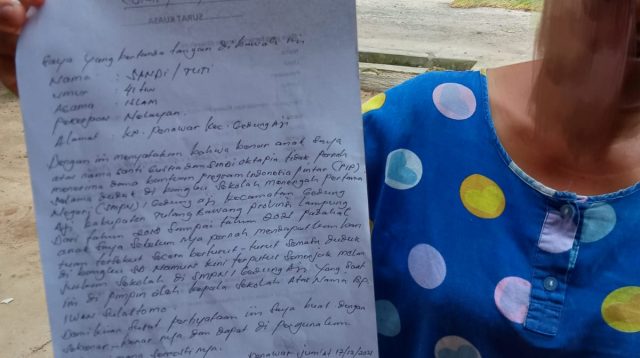 SURAT KUASA
Saya yang bertanda tangan di bawah ini
Nama : SANDI / TUTI
Umur : 41 thn
Agama : ISLAM
Pekerjaan : Nelayan.
Alamat : KP. Penawar Kec. Gedung Aji
Dengan ini menyatakan bahwa benar anak saya
atas nama Santi dan oktapia tidak pernah
menerima dana bantuan program Indonesia pintar (PIP).
selama duduk di bangku sekolah menengah pertama
Negeri (SMPN) 1 Gedung Aji kecamatan Gedung
Aji kabupaten Tulang bawang provinsi Lampung
Dari tahun sampai tahun 2021 padahal
anak saya sebelum nya pernah mendapatkan
tersebut secara berturut-turut semasa duduk
di bangku SD Namun kini terputus semenjak
sekolah di SMPN 1 Gedung Aji yang saat
ini di pimpin oleh kepala sekolah Atas Nama BP.
IWAN Sulattomo
Demikian surat pernyataan ini saya buat dengan
sebenar-benar nya dan dapat di pergunakan
semesti nya.
Penawar, Jum'at 17/12/2021